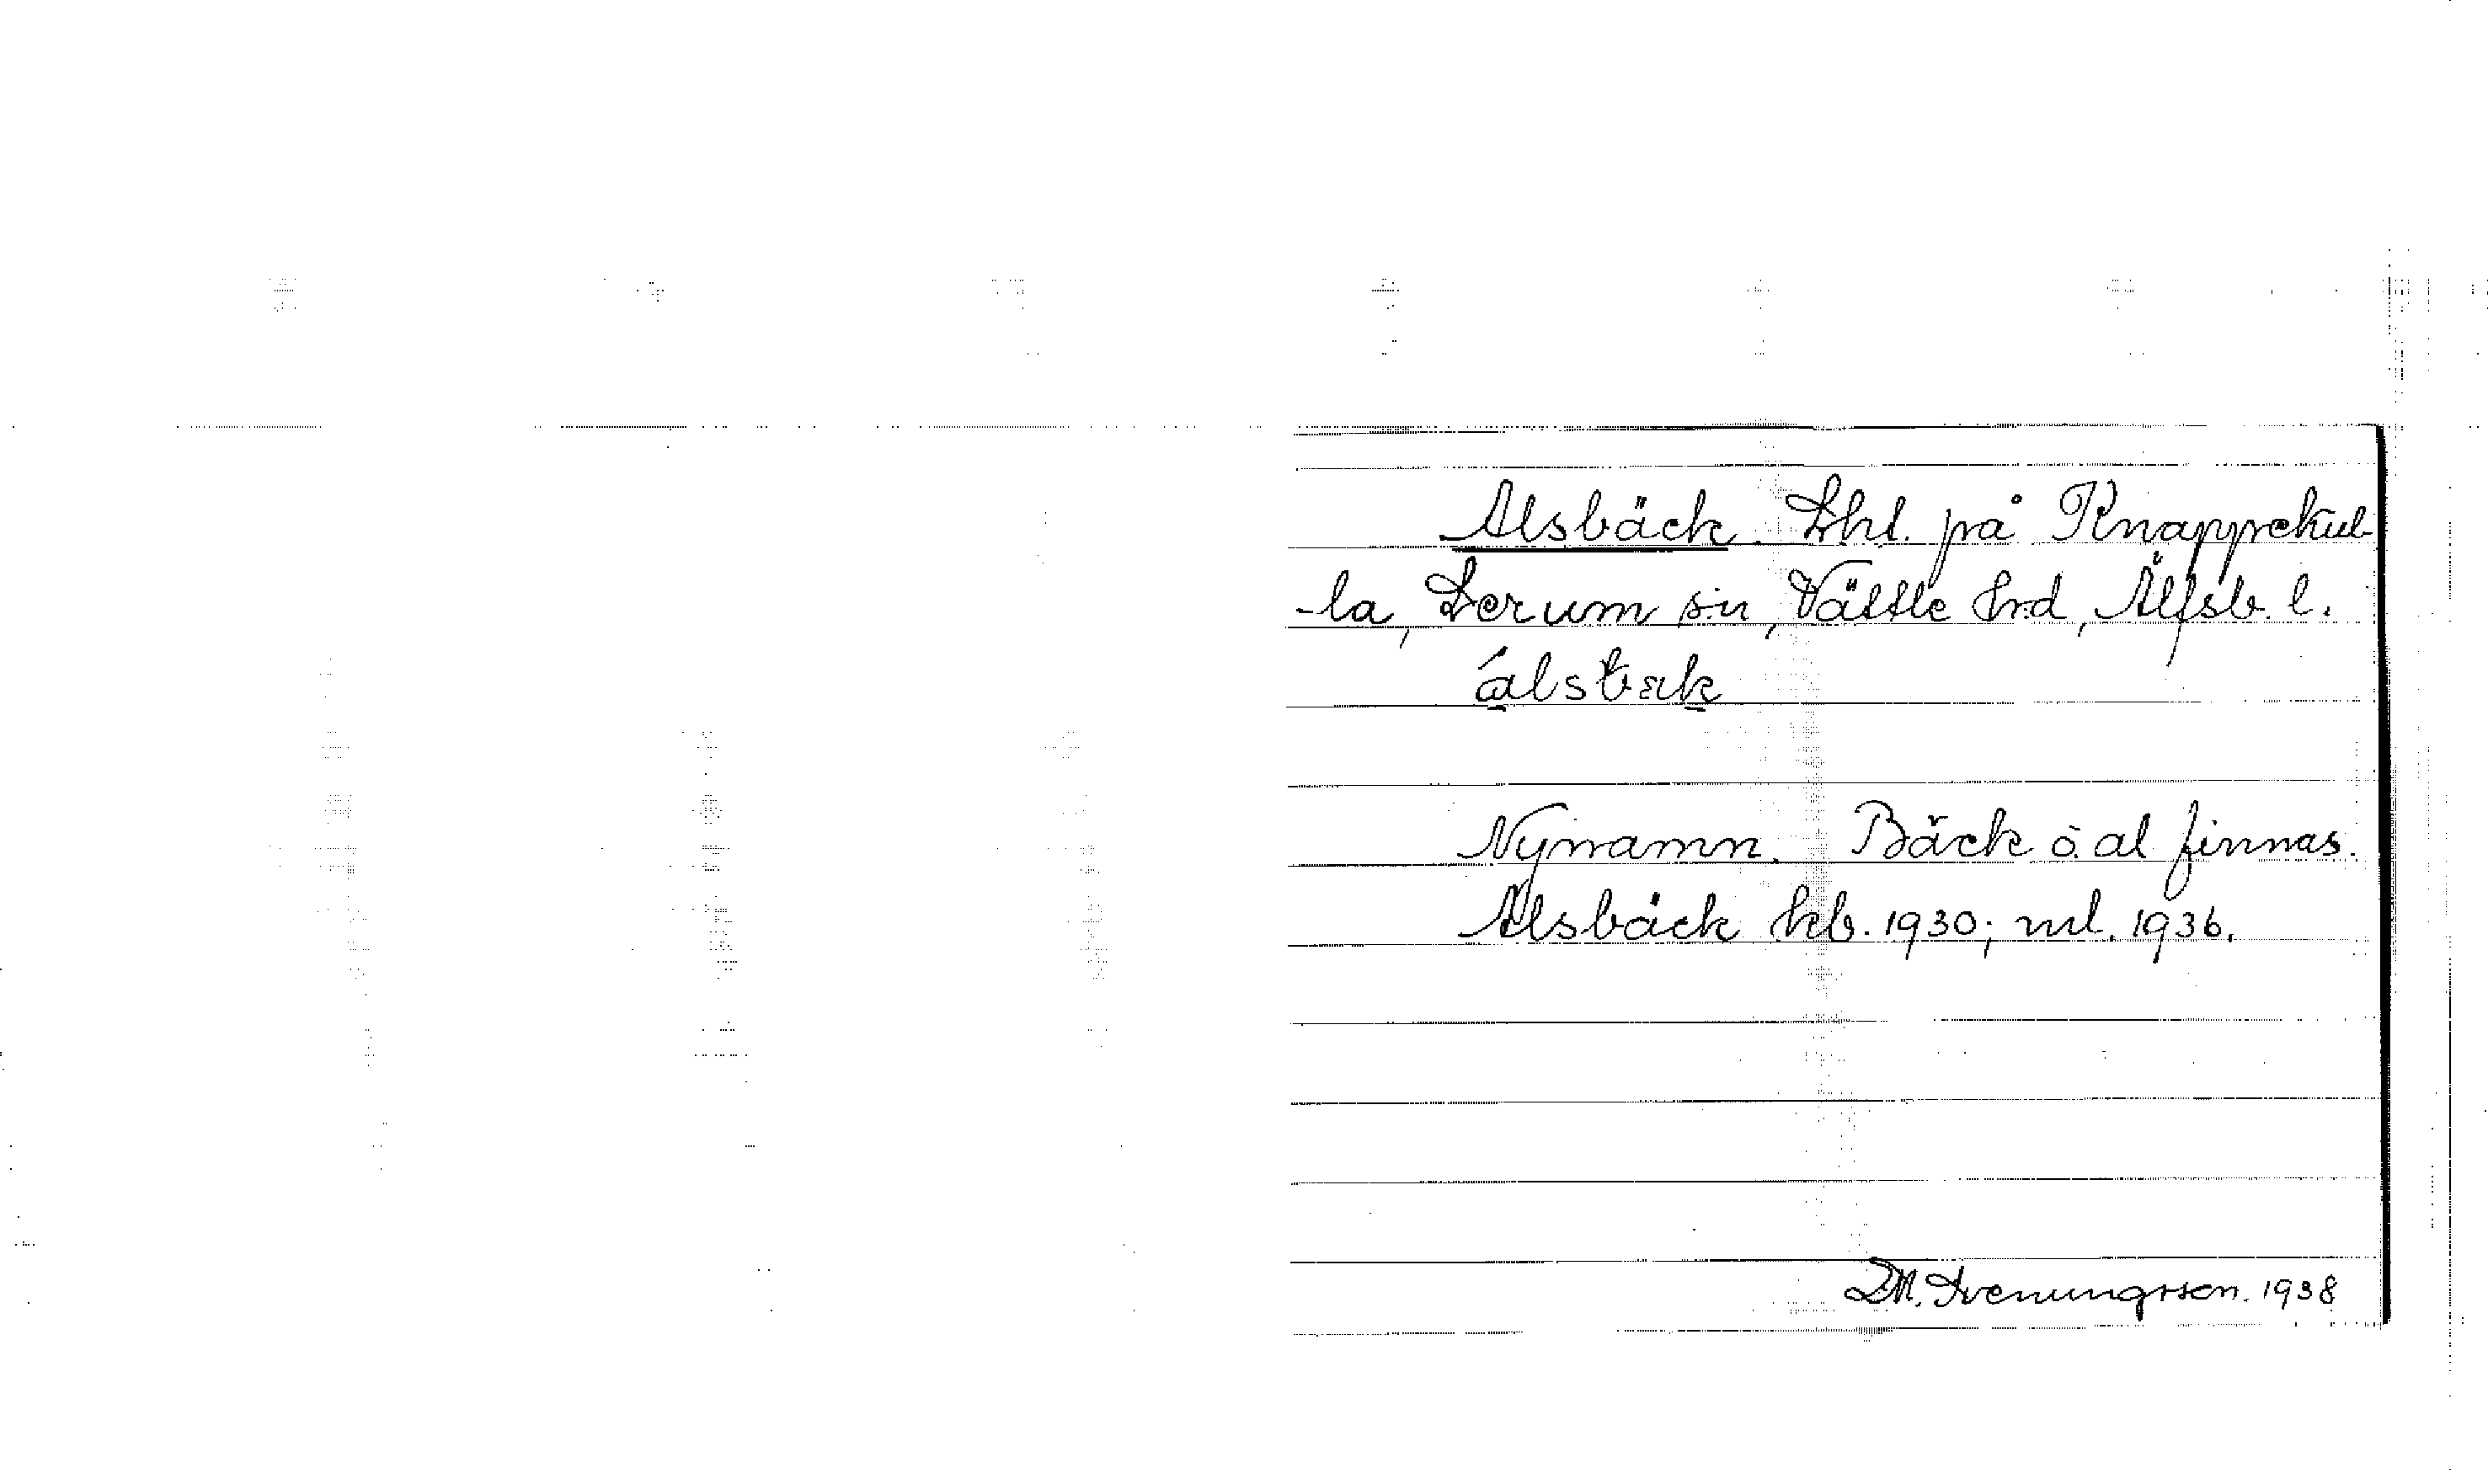 Alsbäck. Lht. på Knappekul-
-la, Lerum sn, Vättle hd, Älfsb. l.
álsbæk
Nynamn. Bäck o. al finnas.
Alsbäck kb. 1930; ml. 1936.
D.M. Evenungsson. 1938